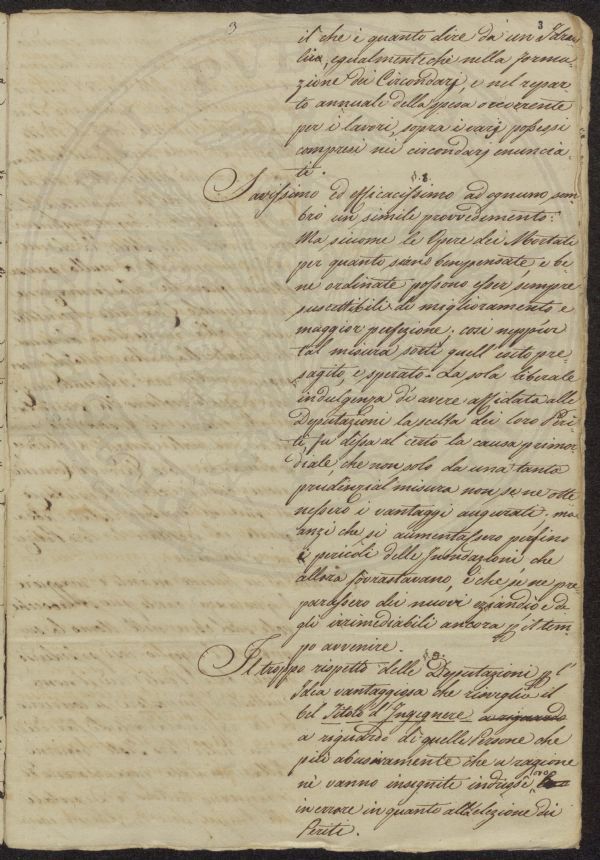 3 3
il che è quanto dire da un Idrau
lico, egualmente che nella forma
zione dei Circondarj, e nel repar
to annuale della spesa occorrente
per i lavori, sopra i varj possessi
compresi nei circondarj enuncia
ti.
§. 2.
Savissimo ed efficacissimo ad ognuno sem
brò un simile provvedimento:
Ma siccome le Opere dei Mortali
per quanto siano benpensate, e be
ne ordinate possono esser sempre
suscettibili di miglioramento e
maggior perfezione, così neppur
tal misura sortì quell' esito pre
sagito, e sperato. La sola liberale
indulgenza d'avere affidata alle
Deputazioni la scelta dei loro Peri
ti fu dessa al certo la causa primor
diale, che non solo da una tanta
prudenzial misura non se ne otte
nessero i vantaggi augurati, ma
anzi che si aumentassero perfino
i pericoli delle Inondazioni che
allora sovrastavano, e che se ne pre
parassero dei nuovi eziandio e de
gli irrimediabili ancora p il tem
po avvenire.
§. 3.
Il troppo rispetto delle Deputazioni p l'
Idea vantaggiosa che risvegliò il
bel Titolo d'Ingegnere a riguardo
a riguardo di quelle Persone che
più abusivamente che a ragione
ne vanno insignite indusse loro
in errore in quanto alla elezione di
Periti.